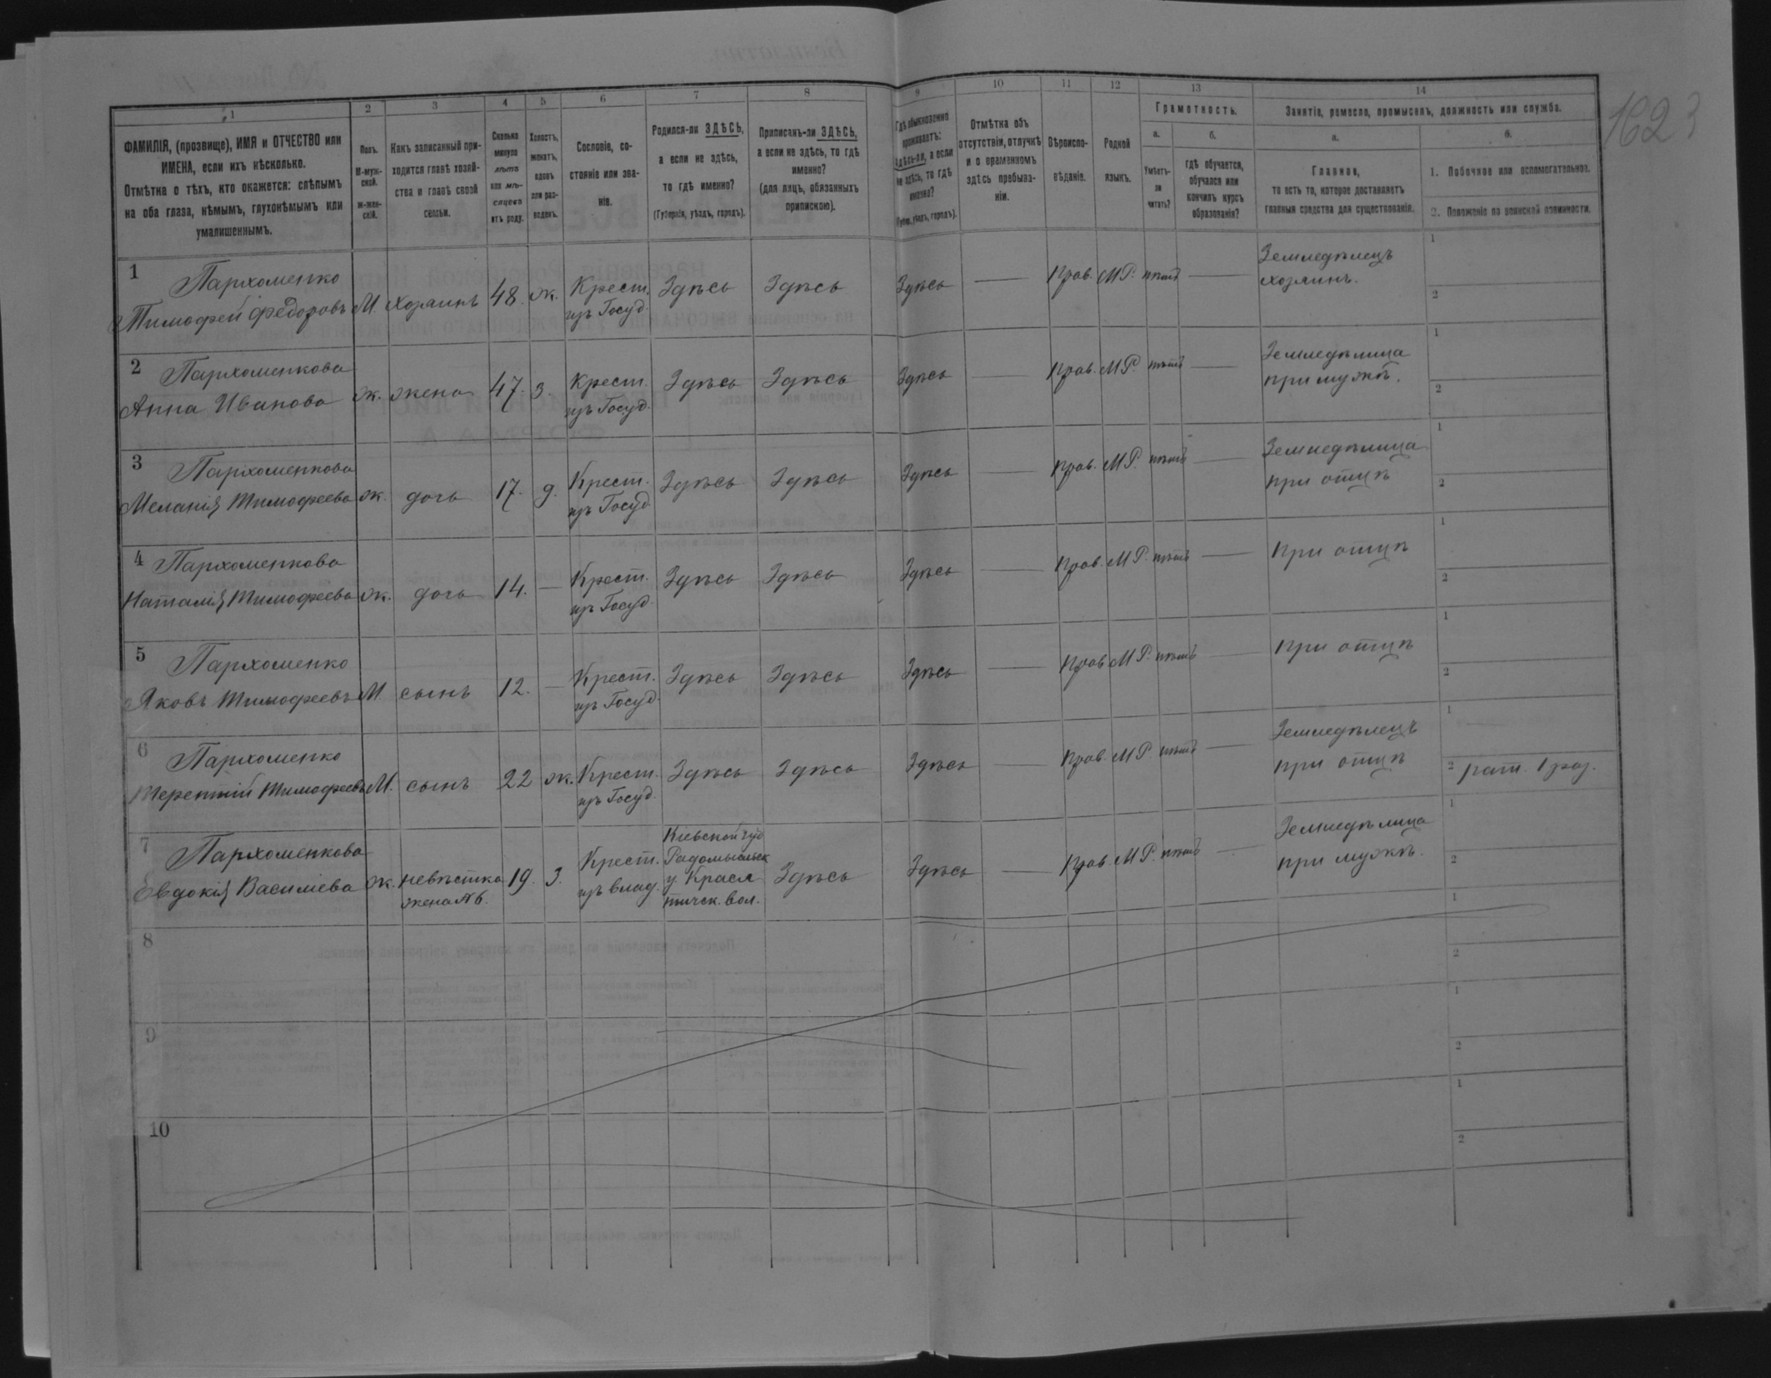 1623
1 2 3 4 5 6 7 8 9 10 11 12 13 14
ФАМИЛІЯ, (прозвище), ИМЯ и ОТЧЕСТВО или
ИМЕНА, если ихъ нѣсколько.
Отмѣтка о тѣхъ, кто окажется: слѣпымъ
на оба глаза, нѣмымъ, глухонѣмымъ или
умалишеннымъ.
Полъ.
М-муж-
ской.
Ж-жен-
скій.
Какъ записанный при-
ходится главѣ хозяй-
ства и главѣ своей
семьи.
Сколько
минуло
лѣтъ
или мѣ-
сяцевъ
отъ роду.
Холостъ,
женатъ,
вдовъ
или раз-
веденъ.
Сословіе, со-
стояніе или зва-
ніе.
Родился-ли ЗДѢСЬ,
а если не здѣсь,
то гдѣ именно?
(Губернія, уѣздъ, городъ).
Приписанъ-ли ЗДѢСЬ,
а если не здѣсь, то гдѣ
именно?
(для лицъ, обязанныхъ
припискою).
Гдѣ обыкновенно
проживаетъ:
здѣсь-ли, а если
не здѣсь, то гдѣ
именно?
(Губерн., уѣздъ, городъ).
Отмѣтка объ
отсутствіи, отлучкѣ
и о временномъ
здѣсь пребыва-
ніи.
Вѣроиспо-
вѣданіе.
Родной
языкъ.
Грамотность.
а.
Умѣетъ-
ли
читать?
б.
гдѣ обучается,
обучался или
кончилъ курсъ
образованія?
Занятіе, ремесло, промыселъ, должность или служба.
а.
Главное,
то есть то, которое доставляетъ
главныя средства для существованія.
б.
1. Побочное или вспомогательное.
2. Положеніе по воинской повинности.
1 Пархоменко
Тимофей Федоровъ М. хозяинъ 48. ж. Крест. изъ Госуд. Здѣсь Здѣсь Здѣсь — Прав. М.Р. нѣтъ — Земледѣлецъ хозяинъ. 1 2
2 Пархоменкова
Анна Иванова ж. жена 47. з. Крест. изъ Госуд. Здѣсь Здѣсь Здѣсь — Прав. М.Р. нѣтъ — Земледѣлица при мужѣ. 1 2
3 Пархоменкова
Меланія Тимофеева ж. дочь 17. д. Крест. изъ Госуд. Здѣсь Здѣсь Здѣсь — Прав. М.Р. нѣтъ — Земледѣлица при отцѣ 1 2
4 Пархоменкова
Наталія Тимофеева ж. дочь 14. — Крест. изъ Госуд. Здѣсь Здѣсь Здѣсь — Прав. М.Р. нѣтъ — при отцѣ 1 2
5 Пархоменко
Яковъ Тимофеевъ М. сынъ 12. — Крест. изъ Госуд. Здѣсь Здѣсь Здѣсь — Прав. М.Р. нѣтъ — при отцѣ 1 2
6 Пархоменко
Терентій Тимофеевъ М. сынъ 22 ж. Крест. изъ Госуд. Здѣсь Здѣсь Здѣсь — Прав. М.Р. нѣтъ — Земледѣлецъ при отцѣ 1 2 рат. 1 раз.
7 Пархоменкова
Евдокія Василіева ж. невѣстка жена №6. 19. з. Крест. изъ влад. Кіевской губ Радомысльск у Крася тичск. вол. Здѣсь Здѣсь — Прав. М.Р. нѣтъ — Земледѣлица при мужѣ. 1 2
8 1 2
9 1 2
10 1 2